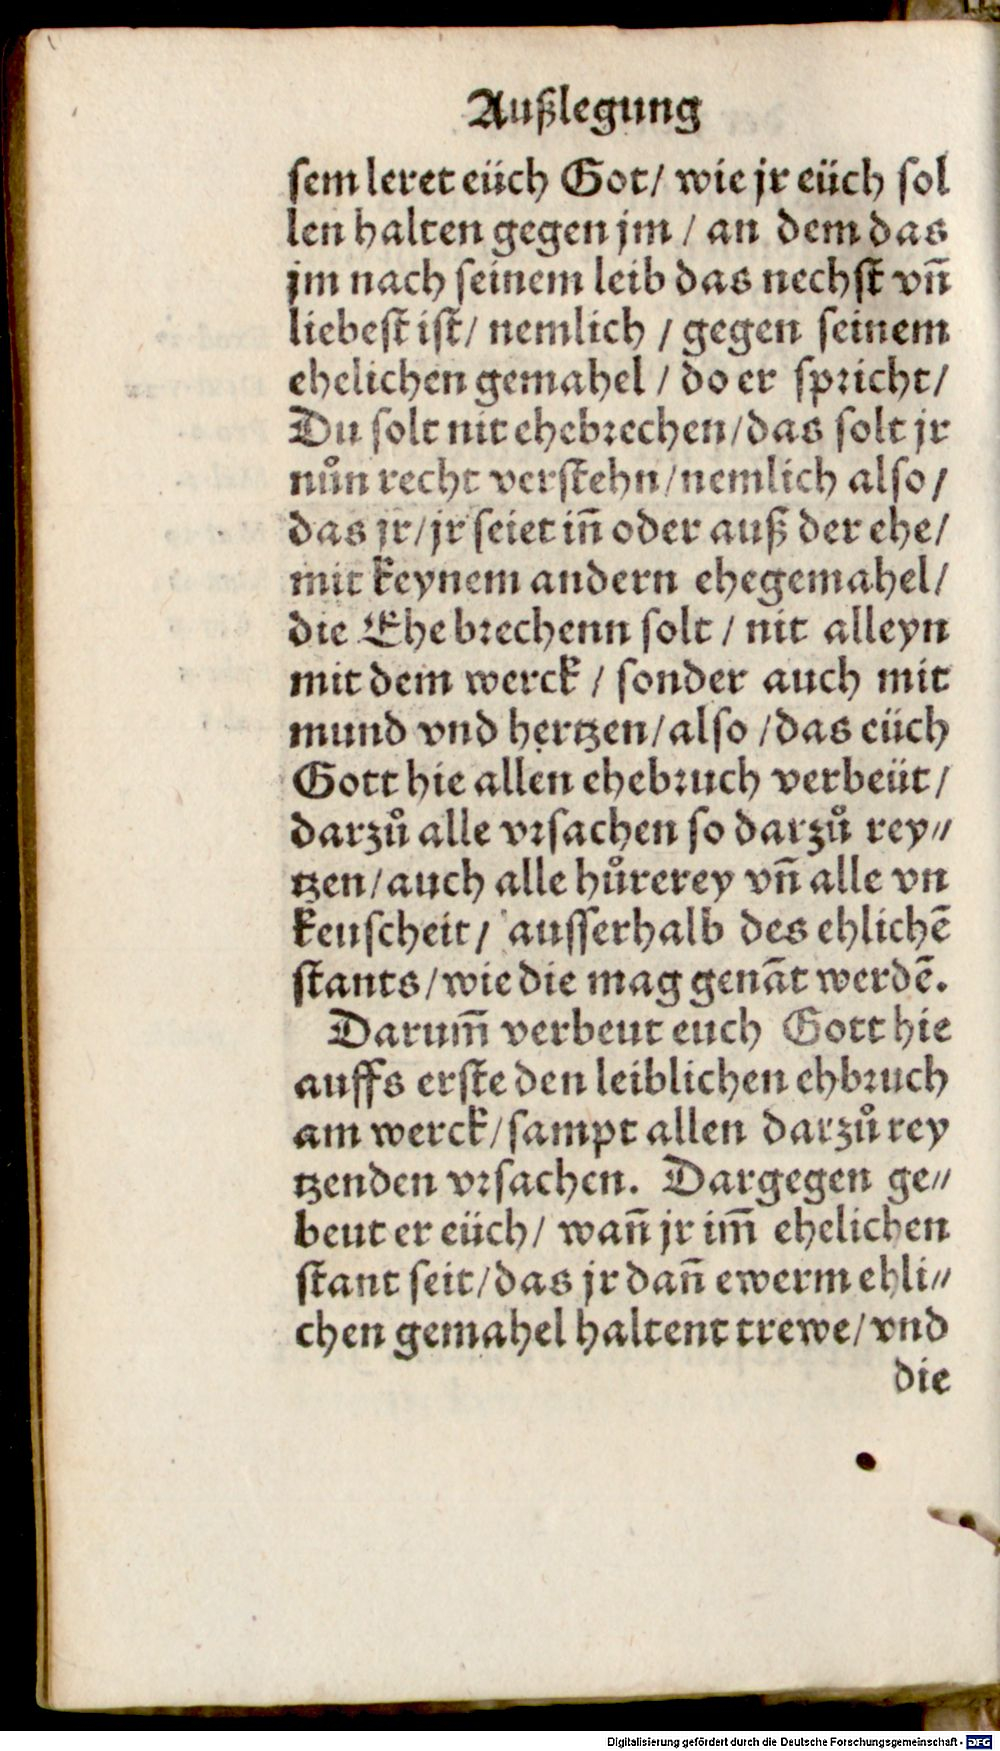 Außlegung
sem leret eüch Got/ wie jr eüch sol
len halten gegen jm / an dem das
jm nach seinem leib das nechst vn̄
liebest ist/ nemlich / gegen seinem
ehelichen gemahel / do er spricht/
Du solt nit ehebrechen/das solt jr
nůn recht verstehn/nemlich also/
das jr/jr seiet in̄ oder auß der ehe/
mit keynem andern ehegemahel/
die Ehe brechenn solt / nit alleyn
mit dem werck / sonder auch mit
mund vnd hertzen/also /das eüch
Gott hie allen ehebruch verbeüt/
darzů alle vrsachen so darzů rey⸗
tzen/auch alle hůrerey vn̄ alle vn
keuscheit/ ausserhalb des ehlichē
stants/wie die mag genāt werdē.
Darum̄ verbeut euch Gott hie
auffs erste den leiblichen ehbruch
am werck/sampt allen darzů rey
tzenden vrsachen. Dargegen ge⸗
beut er eüch/ wan̄ jr im̄ ehelichen
stant seit/das jr dan̄ ewerm ehli⸗
chen gemahel haltent trewe/vnd
die
Digitalisierung gefördert durch die Deutsche Forschungsgemeinschaft - DFG